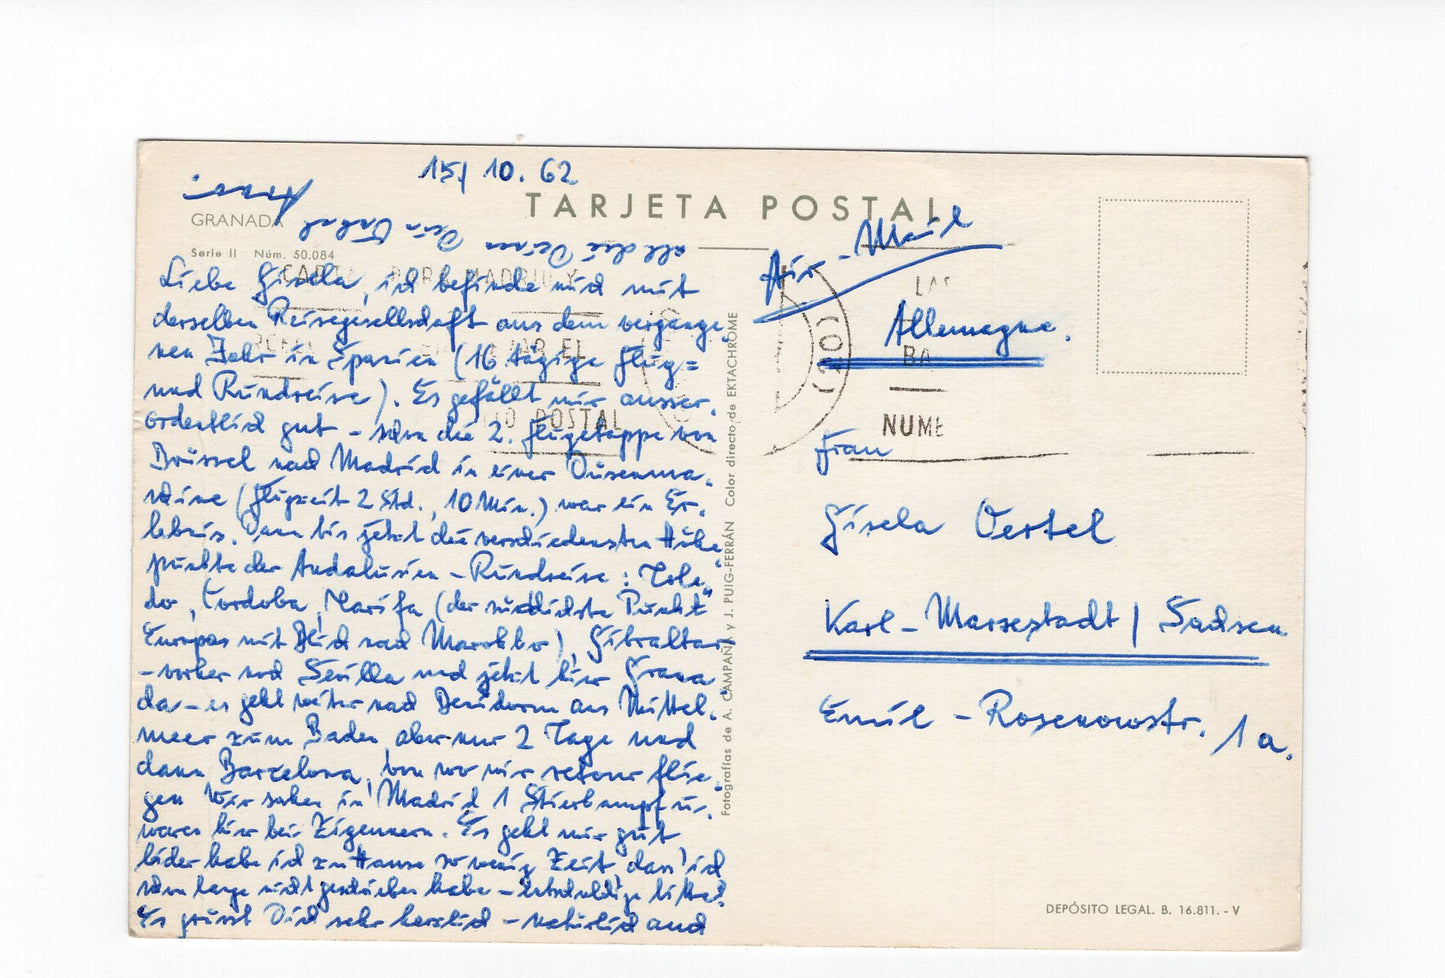 15/ 10. 62
TARJETA POSTAL
GRANADA
Serie II Núm. 50.084
Liebe Gisela, ich befinde mich mit
derselben Reisegesellschaft aus dem vergange-
nen Jahr in Spanien (16 tägige Flug=
und Rundreise). Es gefällt mir ausser-
ordentlich gut – schon die 2. Flugetappe von
Brüssel nach Madrid in einer Düsenma-
schine (Flugzeit 2 Std., 10 Min.) war ein Er-
lebnis. Dann bis jetzt die verschiedensten Höhe-
punkte der Andalusien – Rundreise: Tole-
do, Cordoba, Tarifa (der südlichste Punkt
Europas mit Blick nach Marokko), Gibraltar
– vorher noch Sevilla und jetzt hier Grana-
da – es geht weiter nach Benidorm am Mittel-
meer zum Baden, aber nur 2 Tage und
dann Barcelona, von wo wir retour flie-
gen. Wir sahen in Madrid 1 Stierkampf u.
waren hier bei Zigeunern. Es geht mir gut
leider habe ich zu Hause so wenig Zeit dass ich
schon lange nicht geschrieben habe – entschuldige bitte!
Es grüsst Dich sehr herzlich – natürlich auch
all die Deinen Dein Onkel
CARTA PARA MADRID Y
EL
POSTAL
Fotografías de A. CAMPAÑÁ y J. PUIG-FERRÁN Color directo de EKTACHROME
Air-Mail
LAS
Allemagne.
BA
NUME
Frau
Gisela Oertel
Karl-Marxstadt / Sachsen
Emil-Rosenowstr. 1a.
DEPÓSITO LEGAL. B. 16.811. - V